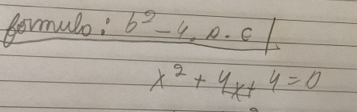 formula: b² - 4.a.c
x² + 4x + 4 = 0